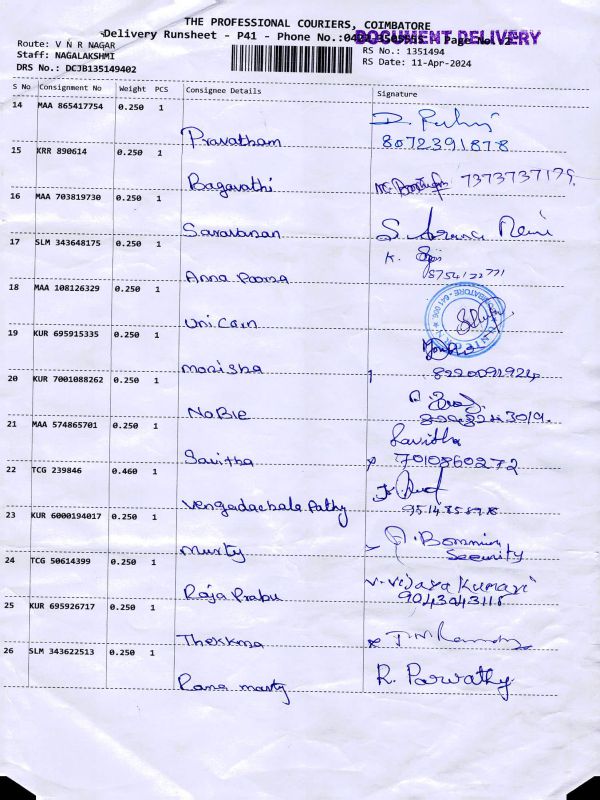 THE PROFESSIONAL COURIERS, COIMBATORE
Delivery Runsheet - P41 - Phone No.: Page No.
DOCUMENT DELIVERY
Route: V N R NAGAR
Staff: NAGALAKSHMI
DRS No.: DCJB135149402
RS No.: 1351494
RS Date: 11-Apr-2024
S No Consignment No Weight PCS Consignee Details Signature
14 MAA 865417754 0.250 1
Pravatham 8072391878
15 KRR 890614 0.250 1
Bagavathi
16 MAA 703819730 0.250 1
Saravanan
17 SLM 343648175 0.250 1 K.
Anna Poorna
18 MAA 108126329 0.250 1
Uni Coin
19 KUR 695915335 0.250 1
Monisha
20 KUR 7001088262 0.250 1
Noble
21 MAA 574865701 0.250 1 Savitha
Savitha 7010860272
22 TCG 239846 0.460 1
Vengadachala Pathy
23 KUR 6000194017 0.250 1
Murty Security
24 TCG 50614399 0.250 1 V. Vijaya Kumari
Raja Prabu 9043043118
25 KUR 695926717 0.250 1
26 SLM 343622513 0.250 1 R. Parwathy
Rama Marty